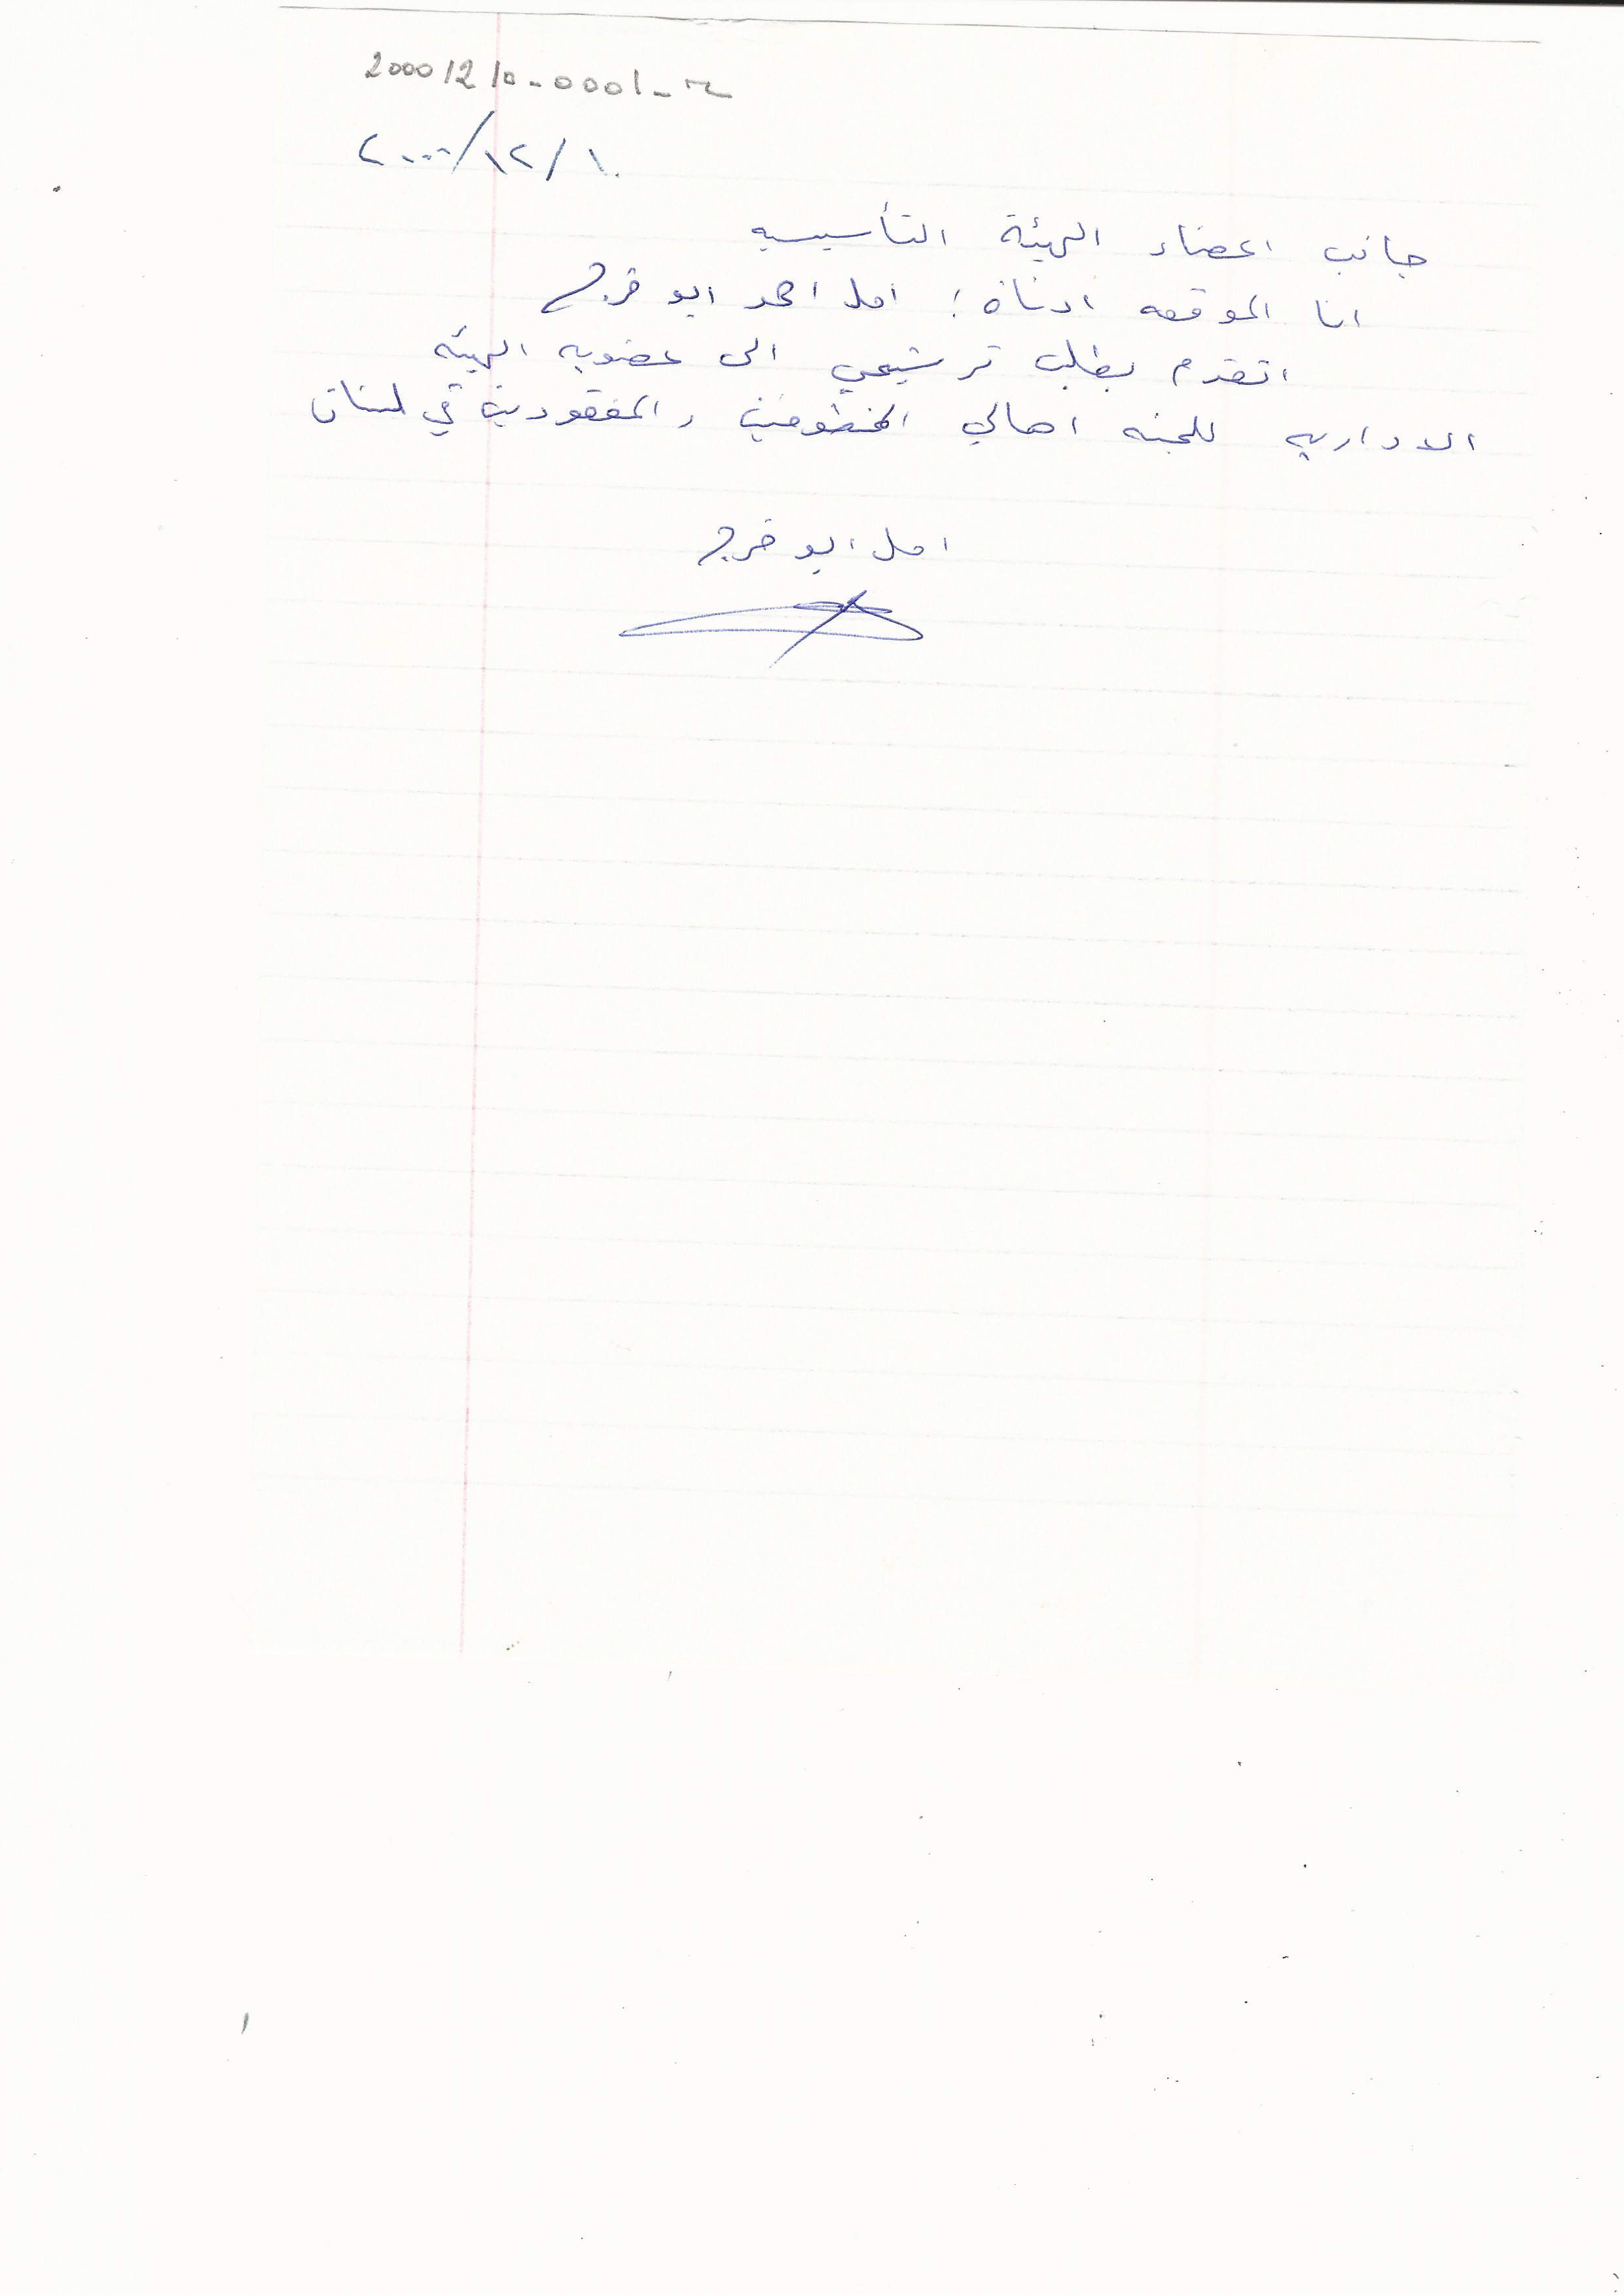 20001210-0001-m
٢٠٠٠/١٢/١٠
جانب اعضاء الهيئة التأسيسيه
انا الموقعه ادناة: امل احمد ابو فرج
اتقدم بطلب ترشيحي الى عضويه الهيئه
الاداريه للجنه اهالي المخطوفين والمفقودين في لبنان
امل ابو فرج